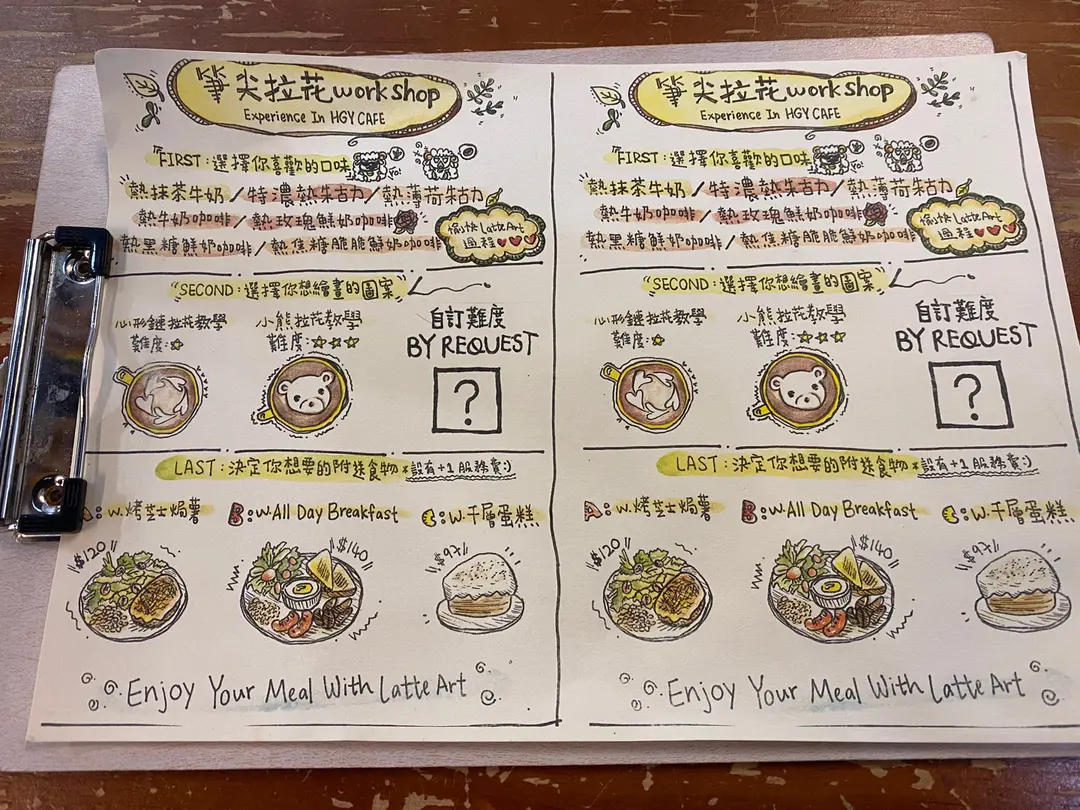 筆尖拉花workshop
Experience In HGY CAFE
FIRST:選擇你喜歡的口味
Yo!
熱抹茶牛奶/特濃熱朱古力/熱薄荷朱古力
熱牛奶咖啡/熱玫瑰鮮奶咖啡
熱黑糖鮮奶咖啡/熱焦糖脆脆鮮奶咖啡
愉快LatteArt
過程
SECOND:選擇你想繪畫的圖案
心形鏈拉花教學
難度:
小熊拉花教學
難度:
自訂難度
BY REQUEST
?
LAST:決定你想要的附送食物*設有+1服務費:)
A:W.烤芝士焗薯
$120
B:W.All Day Breakfast
$140
C:W.千層蛋糕
$97
Enjoy Your Meal With Latte Art
筆尖拉花workshop
Experience In HGY CAFE
FIRST:選擇你喜歡的口味
Yo!
熱抹茶牛奶/特濃熱朱古力/熱薄荷朱古力
熱牛奶咖啡/熱玫瑰鮮奶咖啡
熱黑糖鮮奶咖啡/熱焦糖脆脆鮮奶咖啡
愉快LatteArt
過程
SECOND:選擇你想繪畫的圖案
心形鏈拉花教學
難度:
小熊拉花教學
難度:
自訂難度
BY REQUEST
?
LAST:決定你想要的附送食物*設有+1服務費:)
A:W.烤芝士焗薯
$120
B:W.All Day Breakfast
$140
C:W.千層蛋糕
$97
Enjoy Your Meal With Latte Art